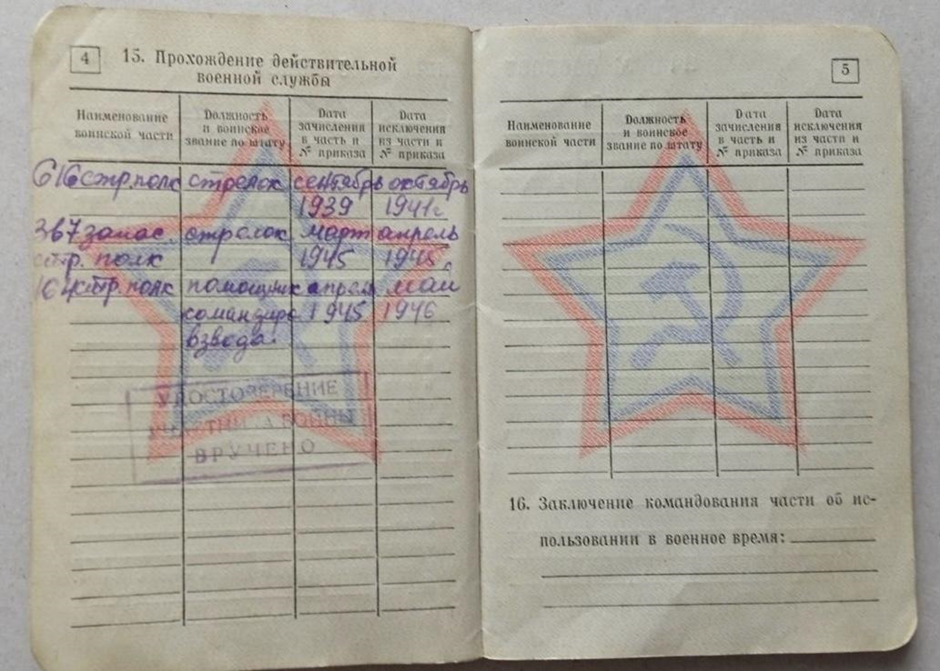 4
15. Прохождение действительной
военной службы
Наименование
воинской части
Должность
и воинское
звание по штату
Дата
зачисления
в часть и
№ приказа
Дата
исключения
из части и
№ приказа
616 стр. полк стрелок сентябрь октябрь
1939 1941г
367 запас. стрелок март апрель
стр. полк 1945 1945г
164 стр. полк помощник апрель май
командира 1945 1946
взвода.
УДОСТОВЕРЕНИЕ
УЧАСТНИКА ВОЙНЫ
ВРУЧЕНО
5
Наименование
воинской части
Должность
и воинское
звание по штату
Дата
зачисления
в часть и
№ приказа
Дата
исключения
из части и
№ приказа
16. Заключение командования части об ис-
пользовании в военное время: